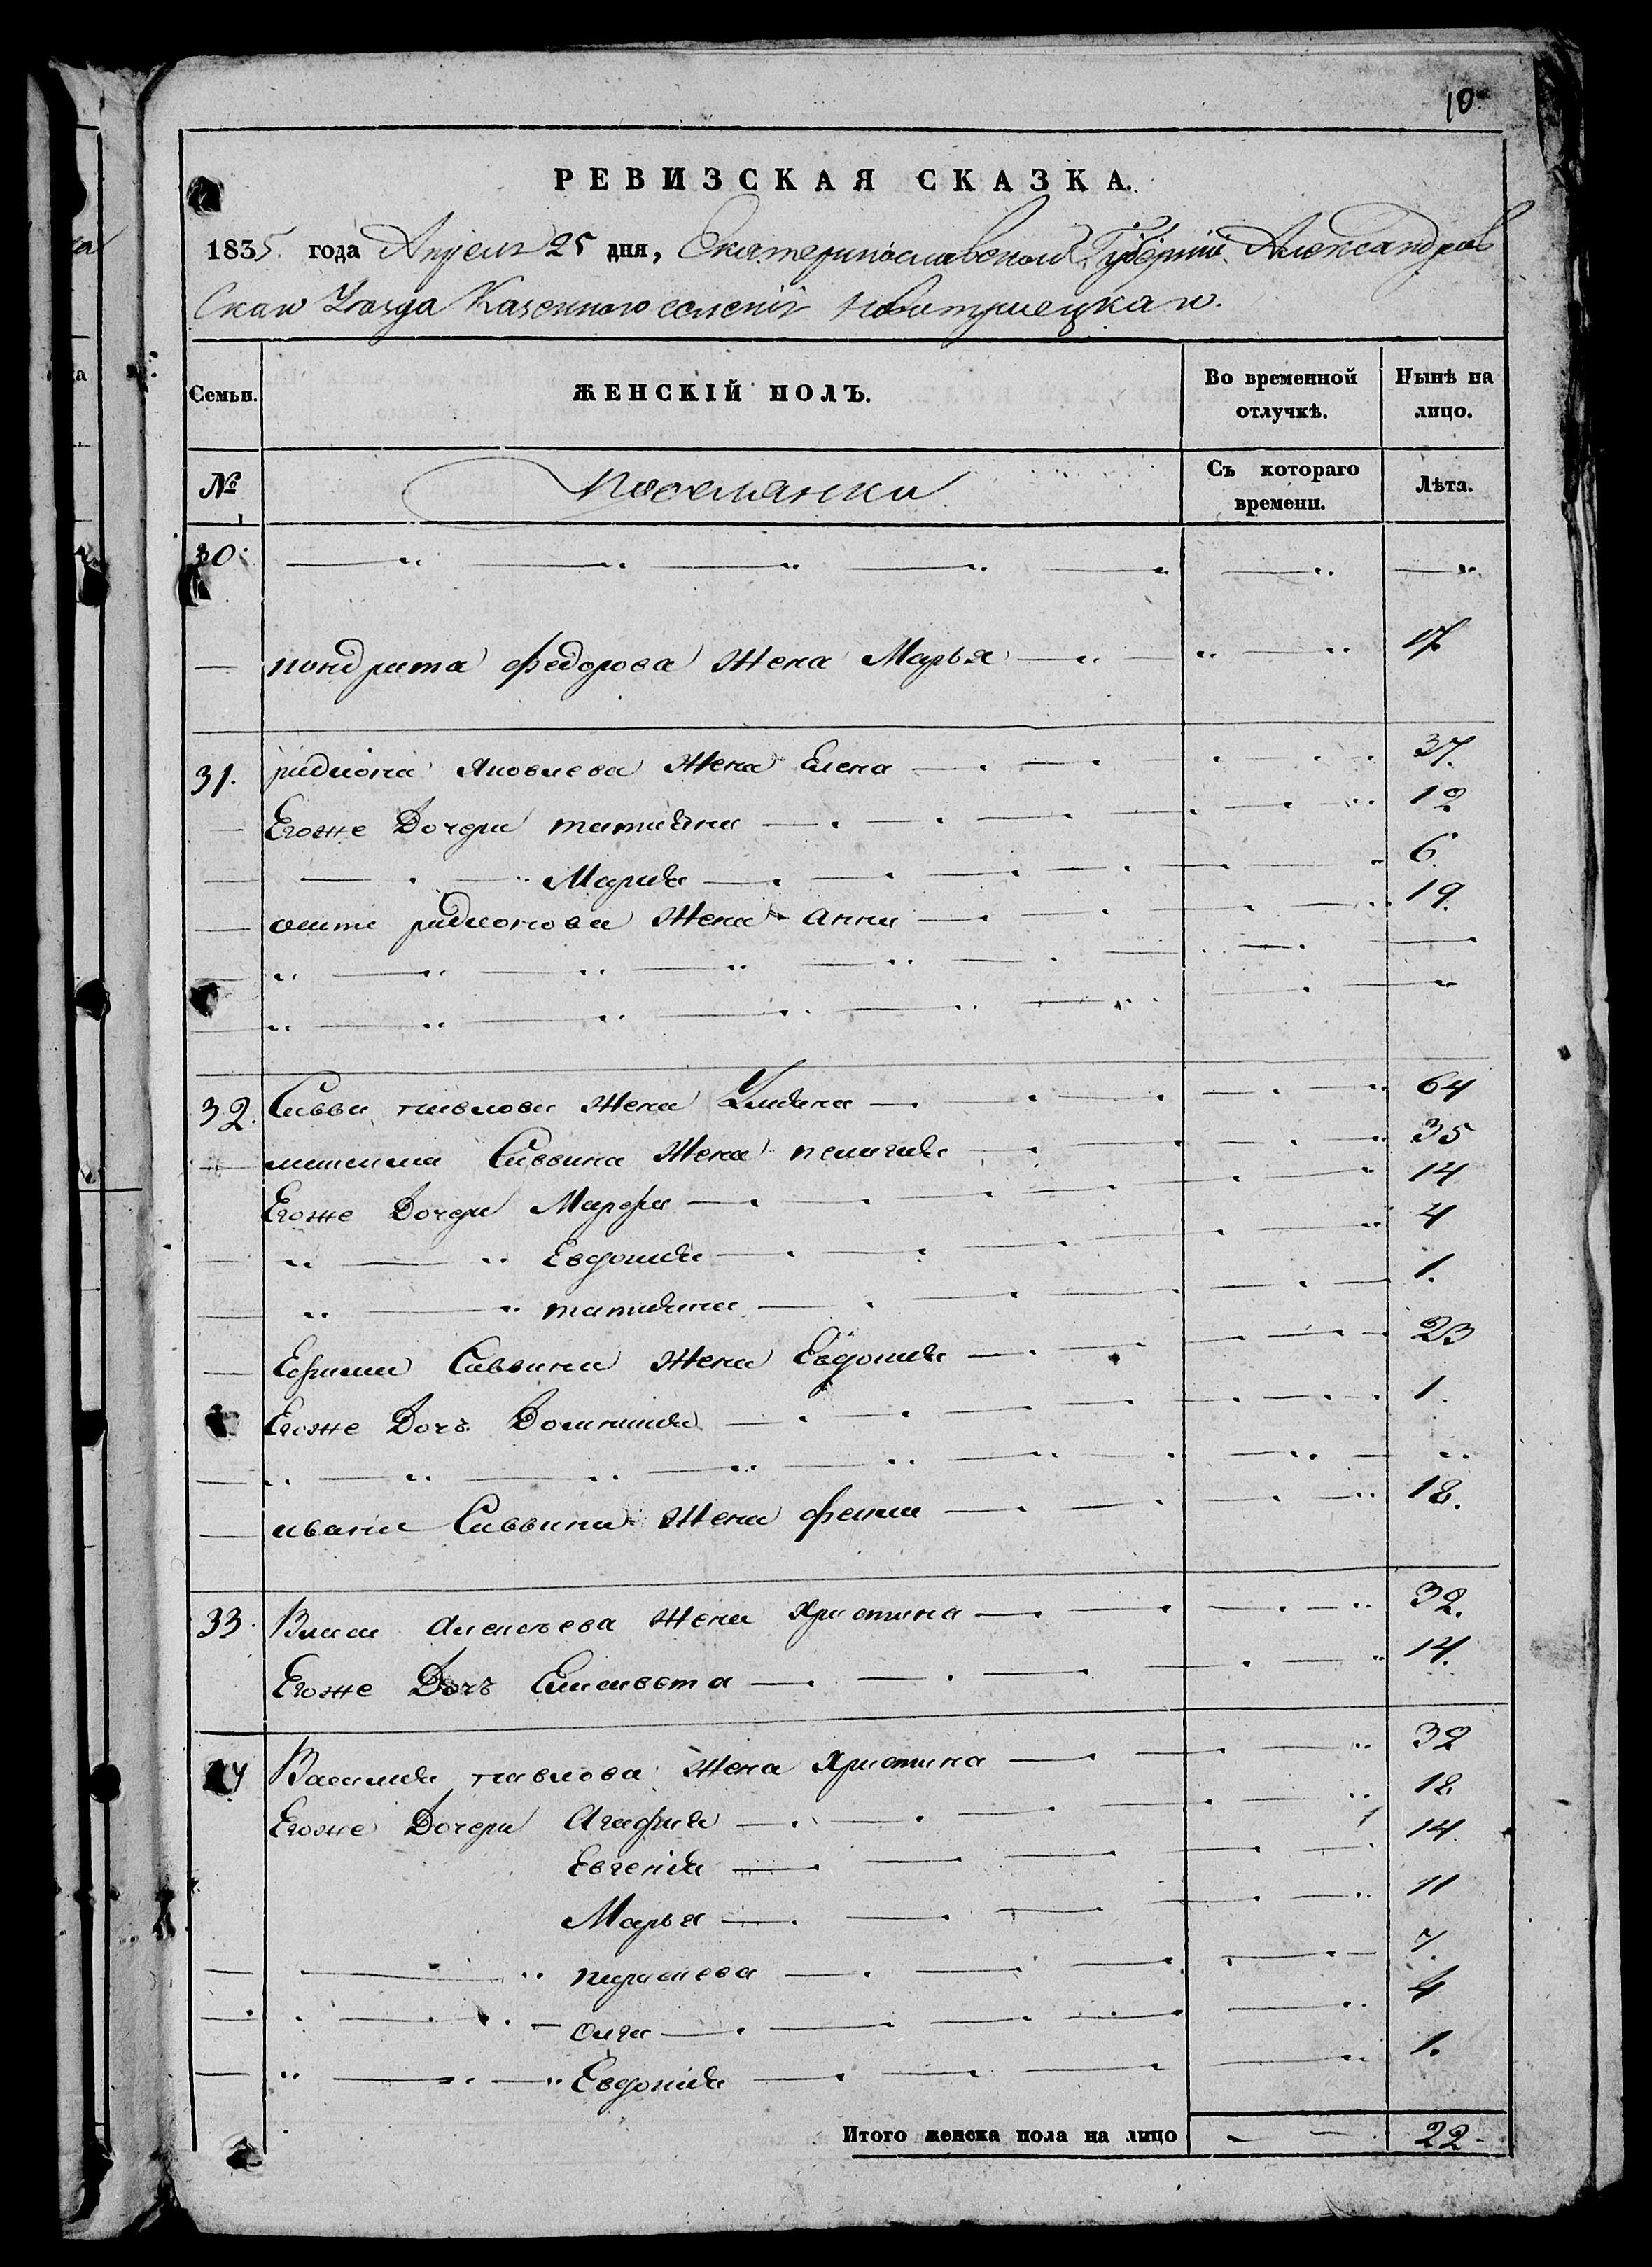 10
РЕВИЗСКАЯ СКАЗКА.
1835 года Апреля 25 дня, Екатеринославской Губернии Александров
Скаго Уезда Казенного селения Новотроецкаго.
Семьи. ЖЕНСКІЙ ПОЛЪ. Во временной отлучкѣ. Нынѣ на лицо.
№ Поселянки Съ котораго времени. Лѣта.
30.
кондрата федорова Жена Марья 17.
31. радиона Яковлева Жена Елена 37.
Егоже Дочери татияна 12
Мария 6
радионова Жена анна 19.
32. Савва павлова Жена Улияна 64
максима Саввина Жена пелагия 35
Егоже Дочери Марфа 14
Евдокия 4
татияна 1.
Ефима Саввина Жена Евдокия 23
Егоже Дочь Домникия 1.
ивана Саввина Жена фекла 18.
33. Власа Алексеева Жена Христина 32.
Егоже Дочь Елисавета 14.
34 Василия павлова Жена Христина 32
Егоже Дочери Агафия 18
Евгения 14
Марья 11
параскева 7.
олга 4
Евдокия 1.
Итого женска пола на лицо 22